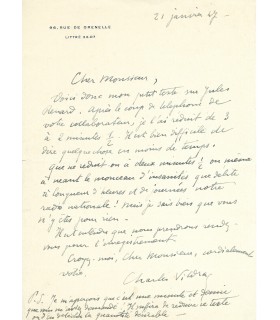 96, RUE DE GRENELLE
LITTRÉ
21 janvier 47.
Cher Monsieur,
Voici donc mon petit texte sur Jules
Renard. Après le coup de téléphone de
votre collaborateur, je l'ai réduit de 3
à 2 minutes ½. Il est bien difficile de
dire quelque chose en moins de temps.
Que ne réduit-on à deux minutes ½ ou même
à néant le monceau d'insanités que débite
à longueur d'heures et de journées notre
radio nationale ! Mais je sais bien que vous
n'y êtes pour rien.
Il est entendu que nous prendrons rendez-
vous pour l'enregistrement.
Croyez-moi, cher Monsieur, cordialement
vôtre.
Charles Vildrac
P.S. Je m'aperçois que c'est une minute et demie
que vous m'avez demandé. Il suffira de réduire ce texte